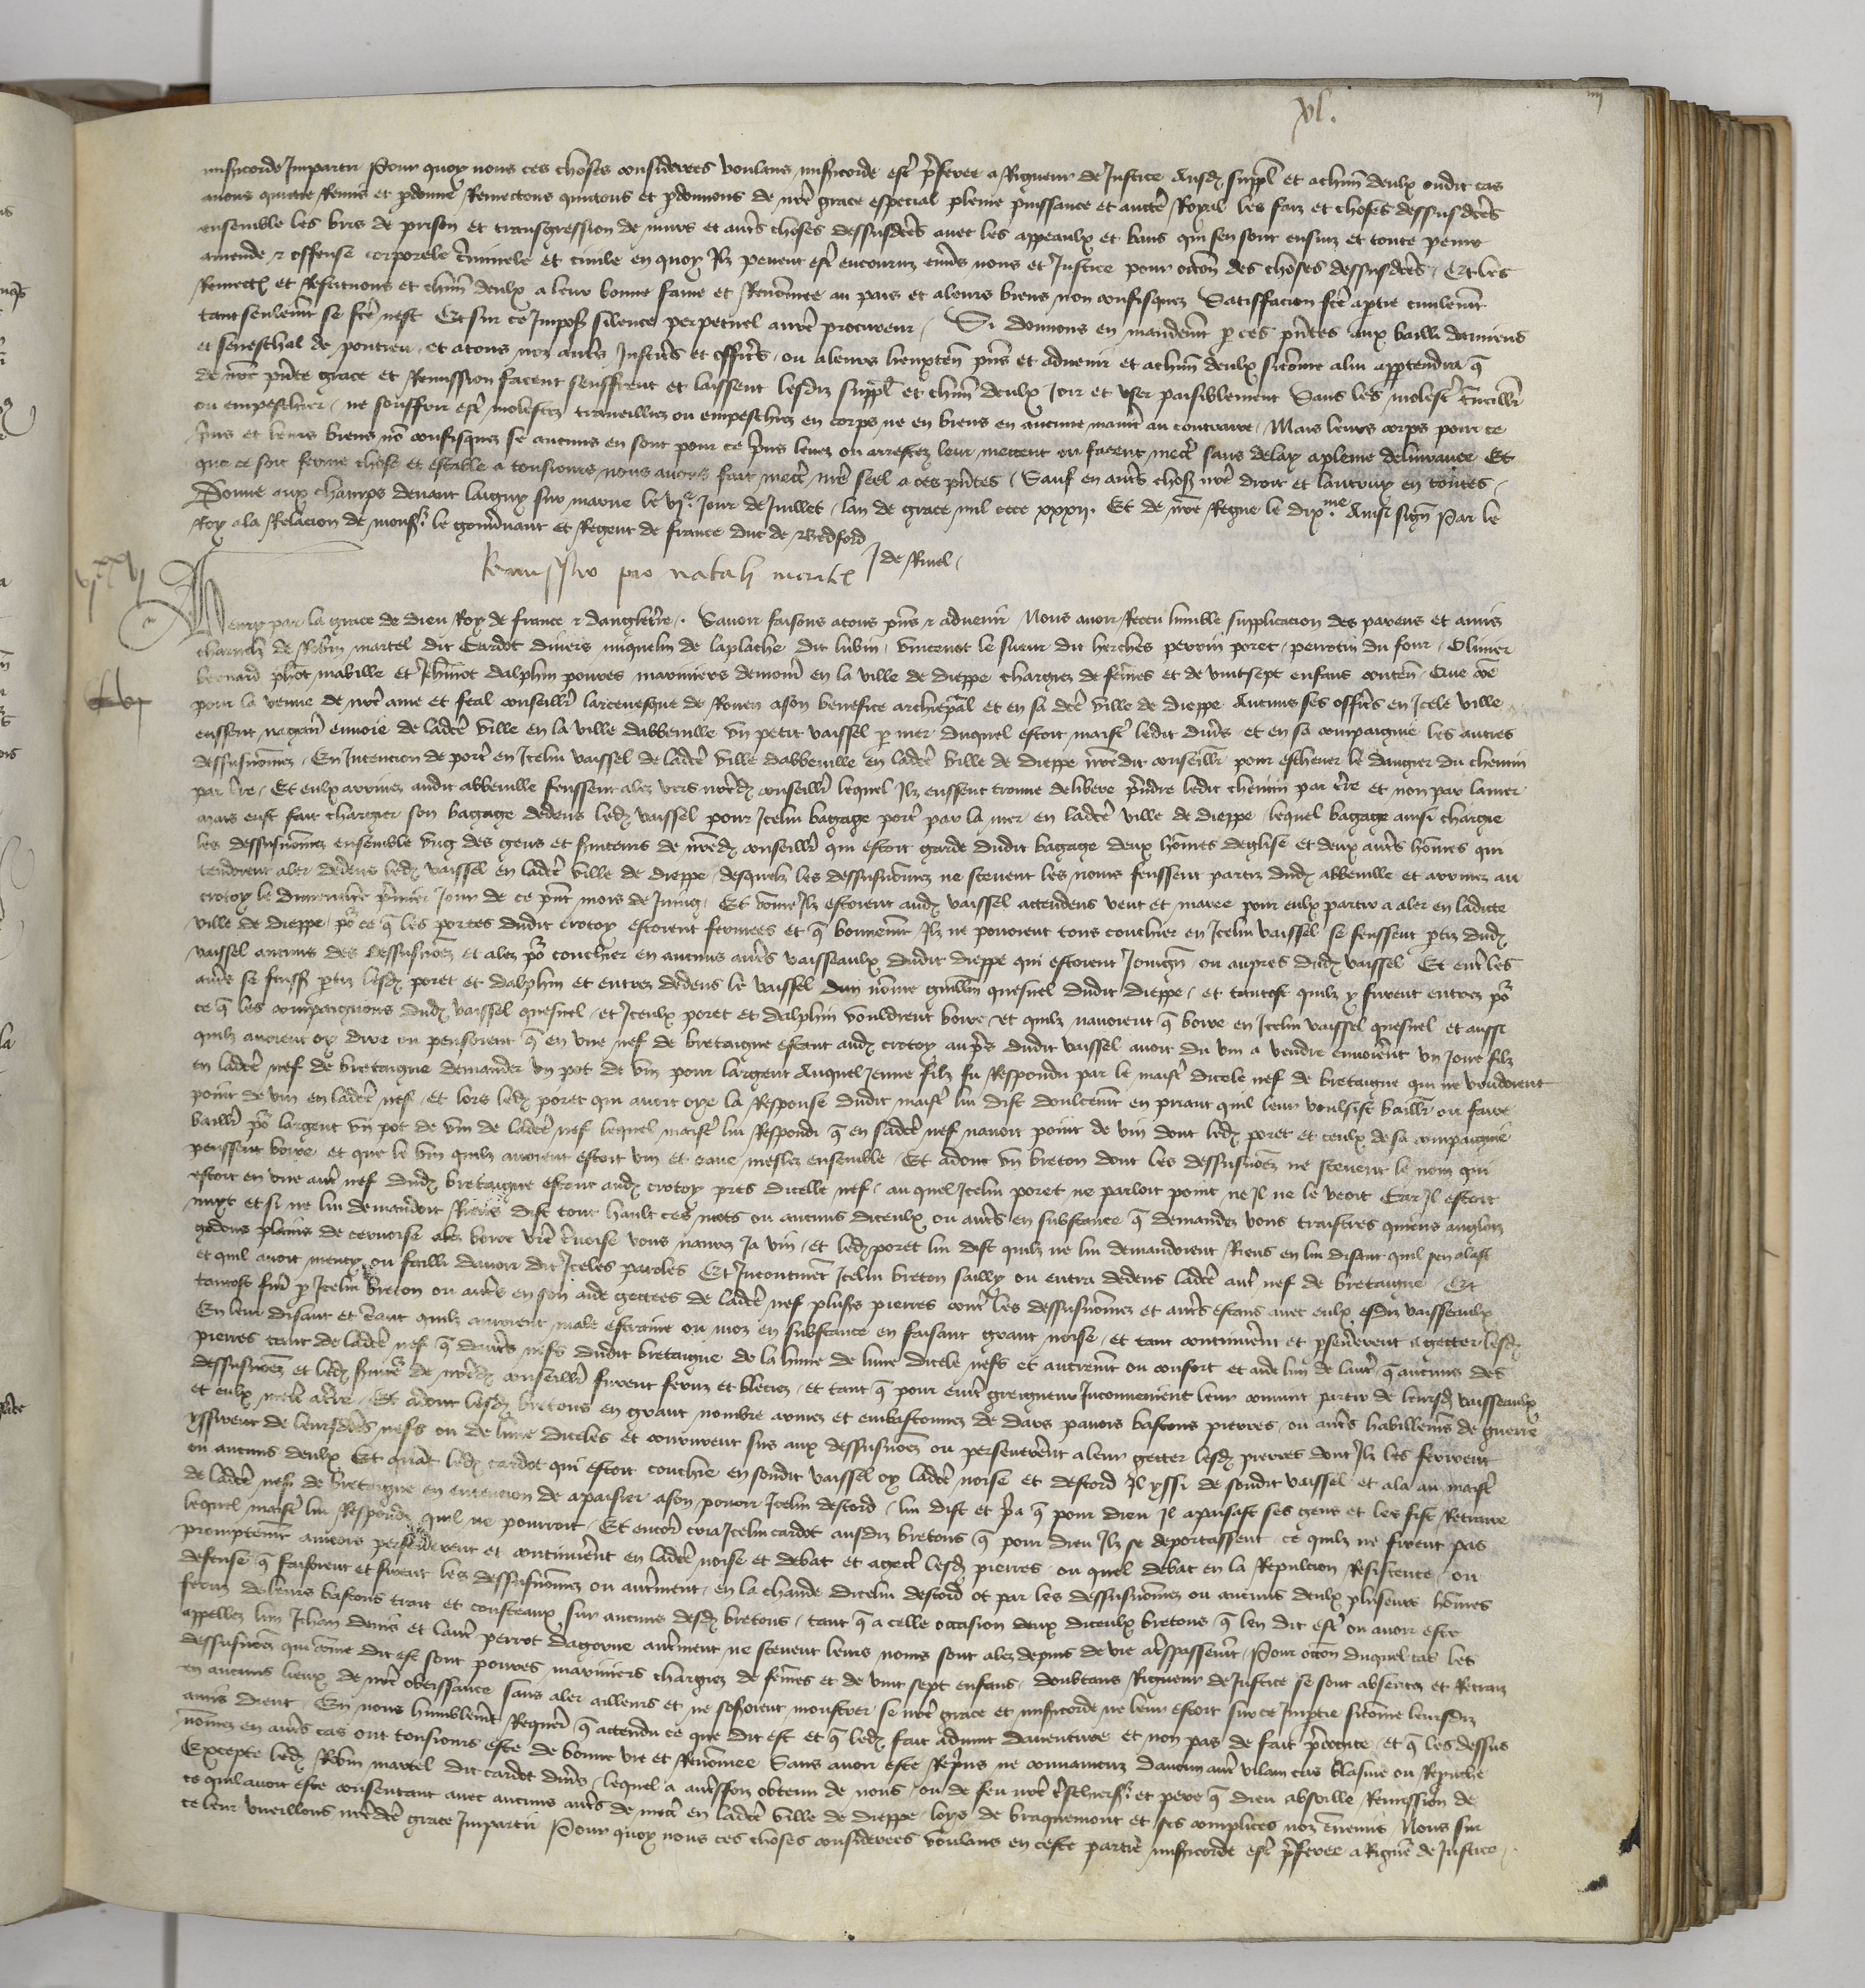 xl.
misericorde Impartir Pour quoy nous ces choses considerees voulans misericorde estre preferee a Rigueur de Justice Ausdiz suppl et a chun deulx oudit cas
avons quitte Remis et pdonne Remectons quictons et pdonnons de nre grace especial pleine puissance et aucte Royal les faiz et choses dessusdictes
ensemble les bris de prison et transgression de murs et autres choses dessusdictes avec les appeaulx et bans qui sen sont ensuiz et toute peine
amende & offense corporele criminele et civile en quoy Ilz pevent estre encouruz envers nous et Justice pour occon des choses dessusdictes Et les
Remectons et Restituons et chun deulx a leur bonne fame et Renommee au pais et a leurs biens non confisquez Satisfacion fce a ptie civilemt
tant seulemt se fce nest Et sur ce Imposons silence perpetuel a nre procureur Si donnons en mandemt p ces pntes aux bailli damiens
et seneschal de pontieu et a tous noz autres Justiciers et officiers ou a leurs lieuxten pns et advenir et a chun deulx sicomme a lui apptendra q
de nre pnte grace et Remission facent seuffrent et laissent lesdiz suppl et chun deulx Joir et user paisiblement Sans les molester travillier
ou empeschier ne souffrir estre molestez travailliez ou empeschiez en corps ne en biens en aucune maniere au contraire Mais leurs corps pour ce
prins et leurs biens non confisquez se aucuns en sont pour ce prins levez ou arrestez leur mectent ou facent mectre sans delay a pleine delivrance Et
que ce soit ferme chose et estable a tousiours nous avons fait mectre nre seel a ces pntes Sauf en autres choses nre droit et lautruy en toutes
Donne aux champs devant laigny sur marne le vje Jour de Juillet lan de grace mil cccc xxxij. Et de nre Regne le dixme Ainsi signe Par le
Roy a la Relacion de monsr le gouvnant et Regent de france duc de Bedford
J de Rinel
Henry par la grace de dieu Roy de france & dangleterre. Savoir faisons a tous pns & advenir Nous avoir Receu humble supplicacion des parens et amis
charnelz de Robin martel dit Cardot divers miquelin de laplache dit lubin vincenot le sueur dit herches perrin poret perrotin du four Olivier
bernard phot maville et Jehannot dalphin povres mariniers demour en la ville de dieppe chargiez de femmes et de vintsept enfans conten Que come
pour la venue de nre ame et feal conseillier larcevesque de Rouen a son benefice archiepal et en sa dce ville de dieppe Aucuns ses officiers en Icele ville
eussent nagaires envoie de ladce ville en la ville dabbeville un petit vaissel p mer duquel estoit maistre ledit divers et en sa compaignie les autres
dessusnommez En Intencion de porter en Icelui vaissel de ladce ville dabbeville en ladce ville de dieppe nredit conseillier pour eschever le dangier du chemin
par terre Et eulx arrivez audit abbeville feussent alez vers nredit conseillier lequel Ilz eussent trouve delibere prendre ledit chemin par terre et non par la mer
mais eust fait chargier son bagage dedens ledit vaissel pour Icelui bagage porter par la mer en ladce ville de dieppe lequel bagage ainsi chargie
les dessusnommez ensemble ung des gens et serviteurs de nredit conseillier qui estoit garde dudit bagage deux hommes deglise et deux autres hommes qui
tendoient aler dedens ledit vaissel en ladce ville de dieppe desquelz les dessusnommez ne scevent les noms feussent partiz dudit abbeville et arrivez au
crotoy le dimenche premier Jour de ce pnt mois de Juing Et comme Ilz estoient audit vaissel actendens vent et maree pour eulx partir a aler en ladicte
ville de dieppe po ce q les portes dudit crotoy estoient fermees et q bonnemt Ilz ne povoient tous couchier en Icelui vaissel se feussent ptiz dudit
vaissel aucuns des dessusnomez et alez po couchier en aucuns autres vaisseaulx dudit dieppe qui estoient Joingn ou aupres dudit vaissel Et entre les
autres se feussent ptiz lesdiz poret et dalphin et entrez dedens le vaissel dun nomme guillin quesnel dudit dieppe et tantost quilz y furent entrez po
ce q les compaignons dudit vaissel quesnel et Iceulx poret et dalphin vouldrent boire et quilz navoient q boire en Icelui vaissel quesnel et aussi
quilz avoient oy dire ou pensoient q en une nef de bretaigne estant audit crotoy aupres dudit vaissel avoit du vin a vendre envoierent un Jone filz
en ladce nef de bretaigne demander un pot de vin pour largent Auquel Jeune filz fu Respondu par le maistre dicele nef de bretaigne qui ne vendoient
point de vin en ladce nef et lors ledit poret qui avoit oye la Response dudit maistre lui dist doulcemt en priant quil leur voulsist baillier ou faire
baillier po largent un pot de vin de ladce nef lequel maistre lui Respondi q en sadce nef navoit point de vin dont ledit poret et ceulx de sa compaignie
peussent boire et que le vin quilz avoient estoit vin et eaue meslez ensemble Et adonc un breton dont les dessusnomez ne scevent le nom qui
estoit en une autre nef dudit bretaigne estant audit crotoy pres dicelle nef au quel Icelui poret ne parloit point ne Il ne le veoit Car Il estoit
nuyt et si ne lui demandoit Riens dist tout hault ces mots ou aucuns diceulx ou autres en substance q demandez vous traistres chiens anglois
godons plains de cervoise alez boire vre cervoise vous naurez Ja vin et ledit poret lui dist quilz ne lui demandoient Riens en lui disant quil sen alast
et quil avoit menty ou failli davoir dit Iceles paroles Et Incontinent Icelui breton sailly ou entra dedens ladce autre nef de bretaigne Et
tantost furent p Icelui breton ou autres en son aide gectees de ladce nef plusrs pierres contre les dessusnommez et autres estans avec eulx esdiz vaisseaulx
En leur disant et criant quilz auroient male estraine ou moz en substance en faisant grant noise et tant continuerent et pseverent a getter lesdictes
pierres tant de ladce nef q dautres nefs dudit bretaigne de la hune de lune dicele nefs et autremt ou confort et aide lun de lautre q aucuns des
dessusnomez et ledit serviteur de nredit conseillier furent feruz et bleciez et tant q pour eviter greigneur Inconvenient leur convint partir de leursdiz vaisseaulx
et eulx mectre a terre Et adonc lesdiz bretons en grant nombre armez et embastonnez de dars pavois bastons pierres ou autres habillemens de guerre
yssirent de leursdictes nefs ou de lune diceles et coururent sus aux dessusnomez ou perseverent a leur getter lesdictes pierres dont Ilz les ferirent
ou aucuns deulx Et quant ledit cardot qui estoit couchie en sondit vaissel oy ladce noise et descord Il yssi de sondit vaissel et ala au maistre
de ladce nef de bretaigne en entencion de apaisier a son povoir Icelui descord lui dist et pria q pour dieu Il apaisast ses gens et les fist Retraire
lequel maistre lui Respondi quil ne pourroit Et encore cria Icelui cardot ausdiz bretons q pour dieu Ilz se deportassent ce quilz ne firent pas
promptemt aincois perseverent et continuerent en ladce noise et debat et a gecter lesdictes pierres ou quel debat en la Repulcion Resistence ou
defense q faisoient et firent les dessusnommez ou autrement en la chaude dicelui descord ot par les dessusnommez ou aucuns deulx pluseurs hommes
feruz de leurs bastons trait et cousteaux sur aucuns desdiz bretons tant q a celle occasion deux diceulx bretons q len dit estre ou avoir este
appellez lun Jehan denis et lautre perrot dagorne autrement ne scevent leurs noms sont alez depuis de vie a trespassemt Pour occon duquel cas les
dessusnomez qui come dit est sont povres mariniers chargiez de femmes et de vint sept enfans doubtans Rigueur de Justice se sont absentez et Retraiz
en aucuns lieux de nre obeissance sans aler ailleurs et ne soseroient monstrer se nre grace et misericorde ne leur estoit sur ce Imptie sicomme leursdiz
amis dient En nous humblemt Requerant q actendu ce que dit est et q ledit fait advint daventure et non pas de fait precogite et q les dessus
nommez en autres cas ont tousiours este de bonne vie et Renommee Sans avoir este Reprins ne convaincuz daucun autre vilain cas blasme ou Reprouche
Excepte ledit Robin martel dit cardot divers lequel a autresfoiz obtenu de nous ou de feu nre treschiersr et pere q dieu absoille Remission de
ce quil avoit este consentant avec aucuns autres de mectre en ladce ville de dieppe loys de braquemont et ses complices noz ennemis Nous sur
ce leur vueillons nredce grace Impartir Pour quoy nous ces choses considerees voulans en ceste partie misericorde estre preferee a Rigueur de Justice